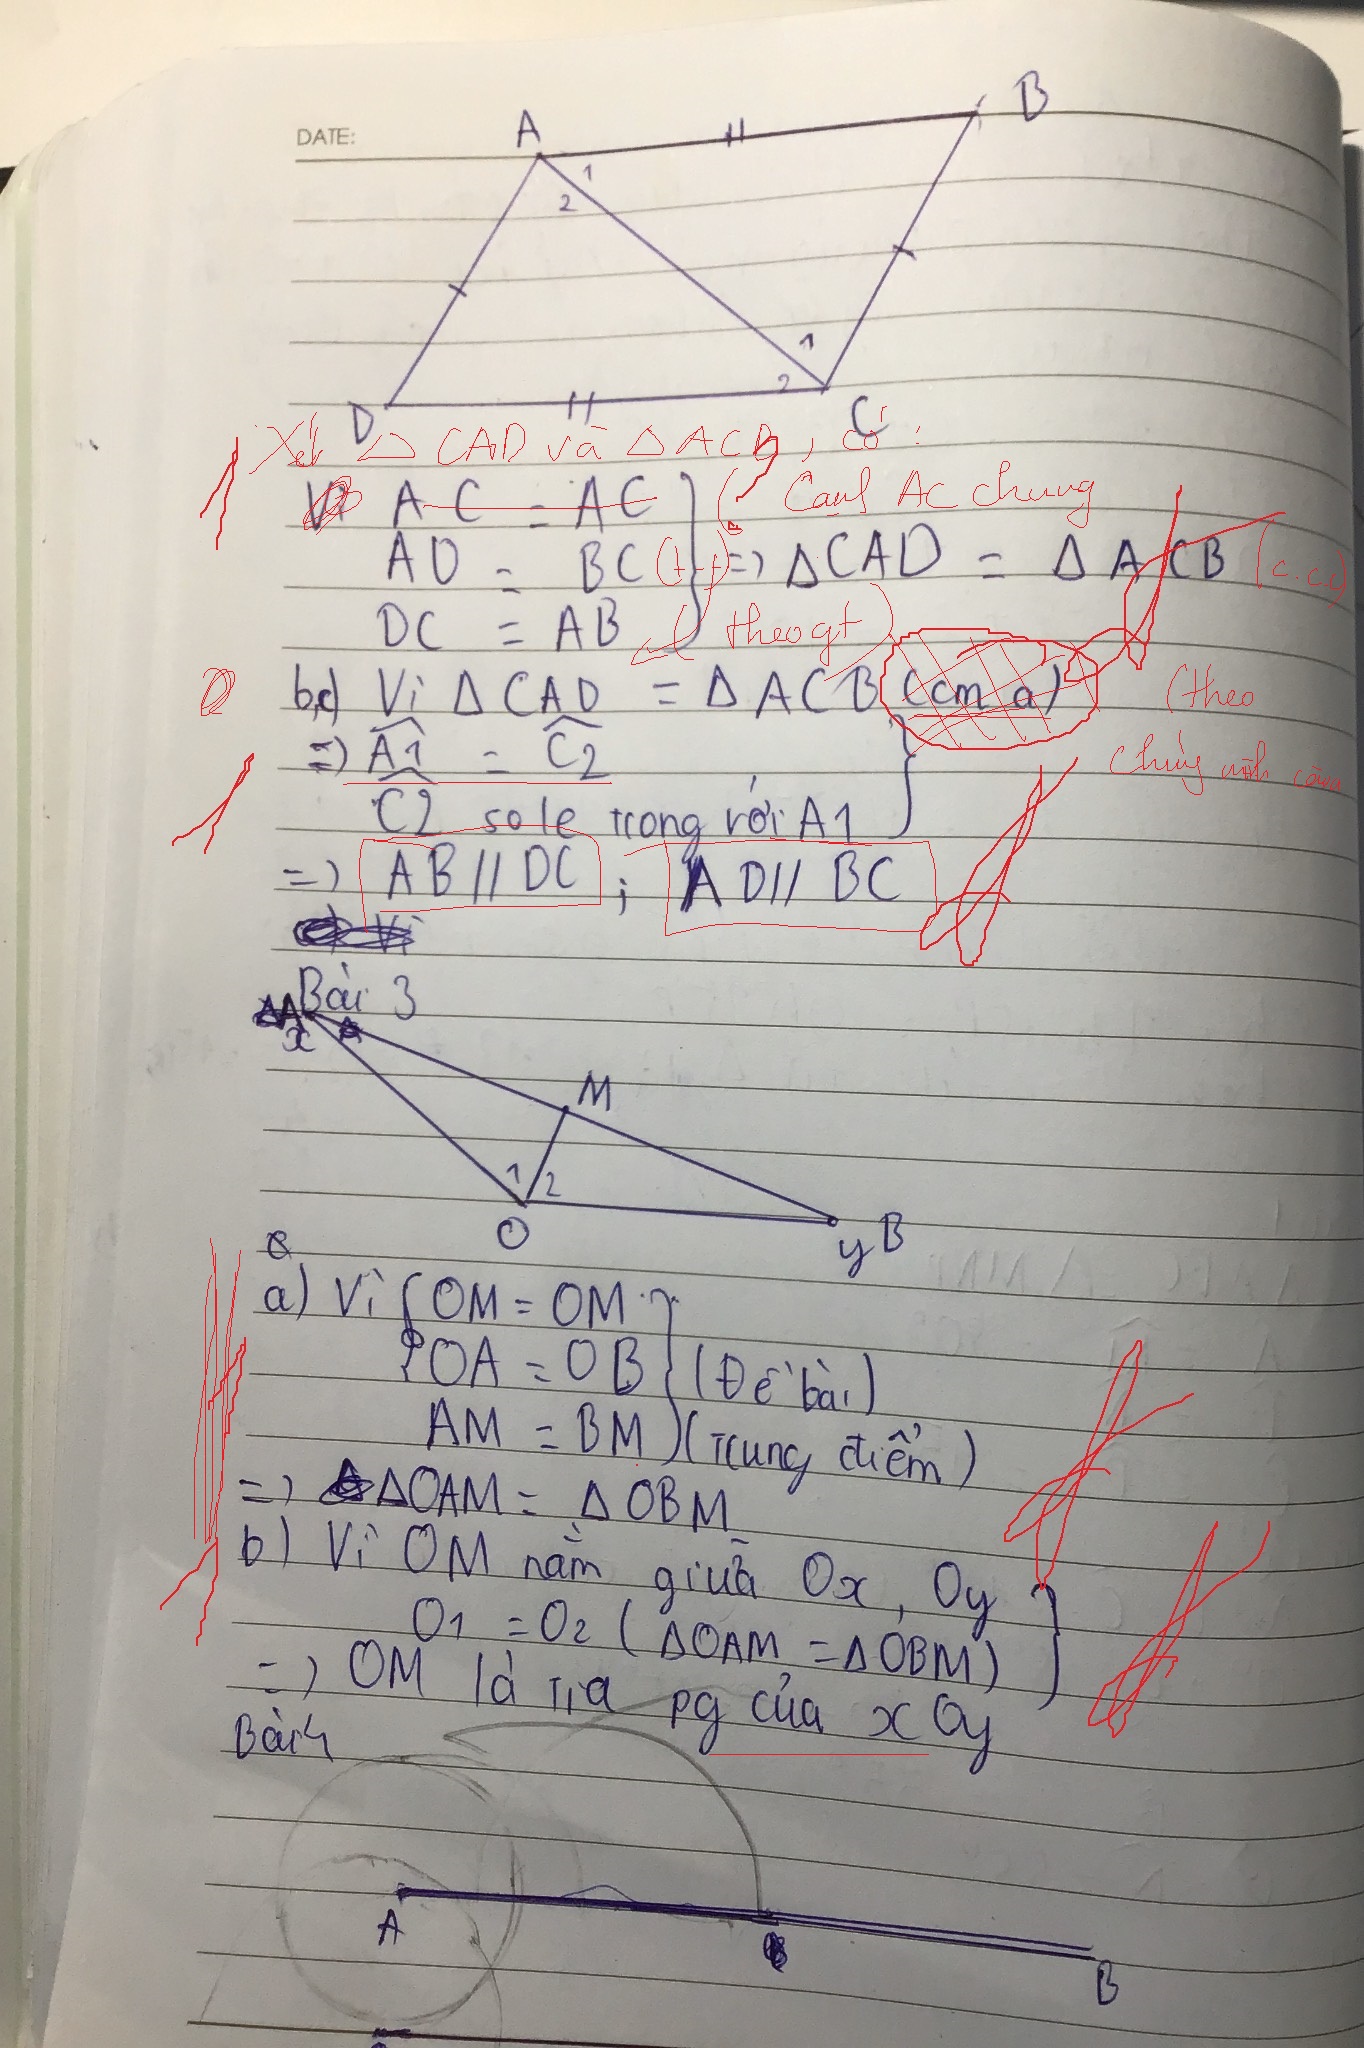 DATE:
A
B
1
2
1
2
D
C
Xét Δ CAD và Δ ACB, có :
Vì AC = AC
Cạnh AC chung
AD = BC (t.t) => ΔCAD = Δ ACB (c.c.c)
DC = AB (theo gt)
b,c) Vì Δ CAD = Δ ACB (cm a) (theo
=> A1 = C2
chứng minh
C2 sole trong với A1
=> AB // DC ; AD // BC
Vì
Bài 3
x A
M
1 2
O
y B
a) Vì { OM = OM
OA = OB (Đề bài)
AM = BM (Trung điểm)
=> ΔOAM = ΔOBM
b) Vì OM nằm giữa Ox, Oy
O1 = O2 (ΔOAM = ΔOBM)
=> OM là tia pg của xOy
Bài 4
A
B